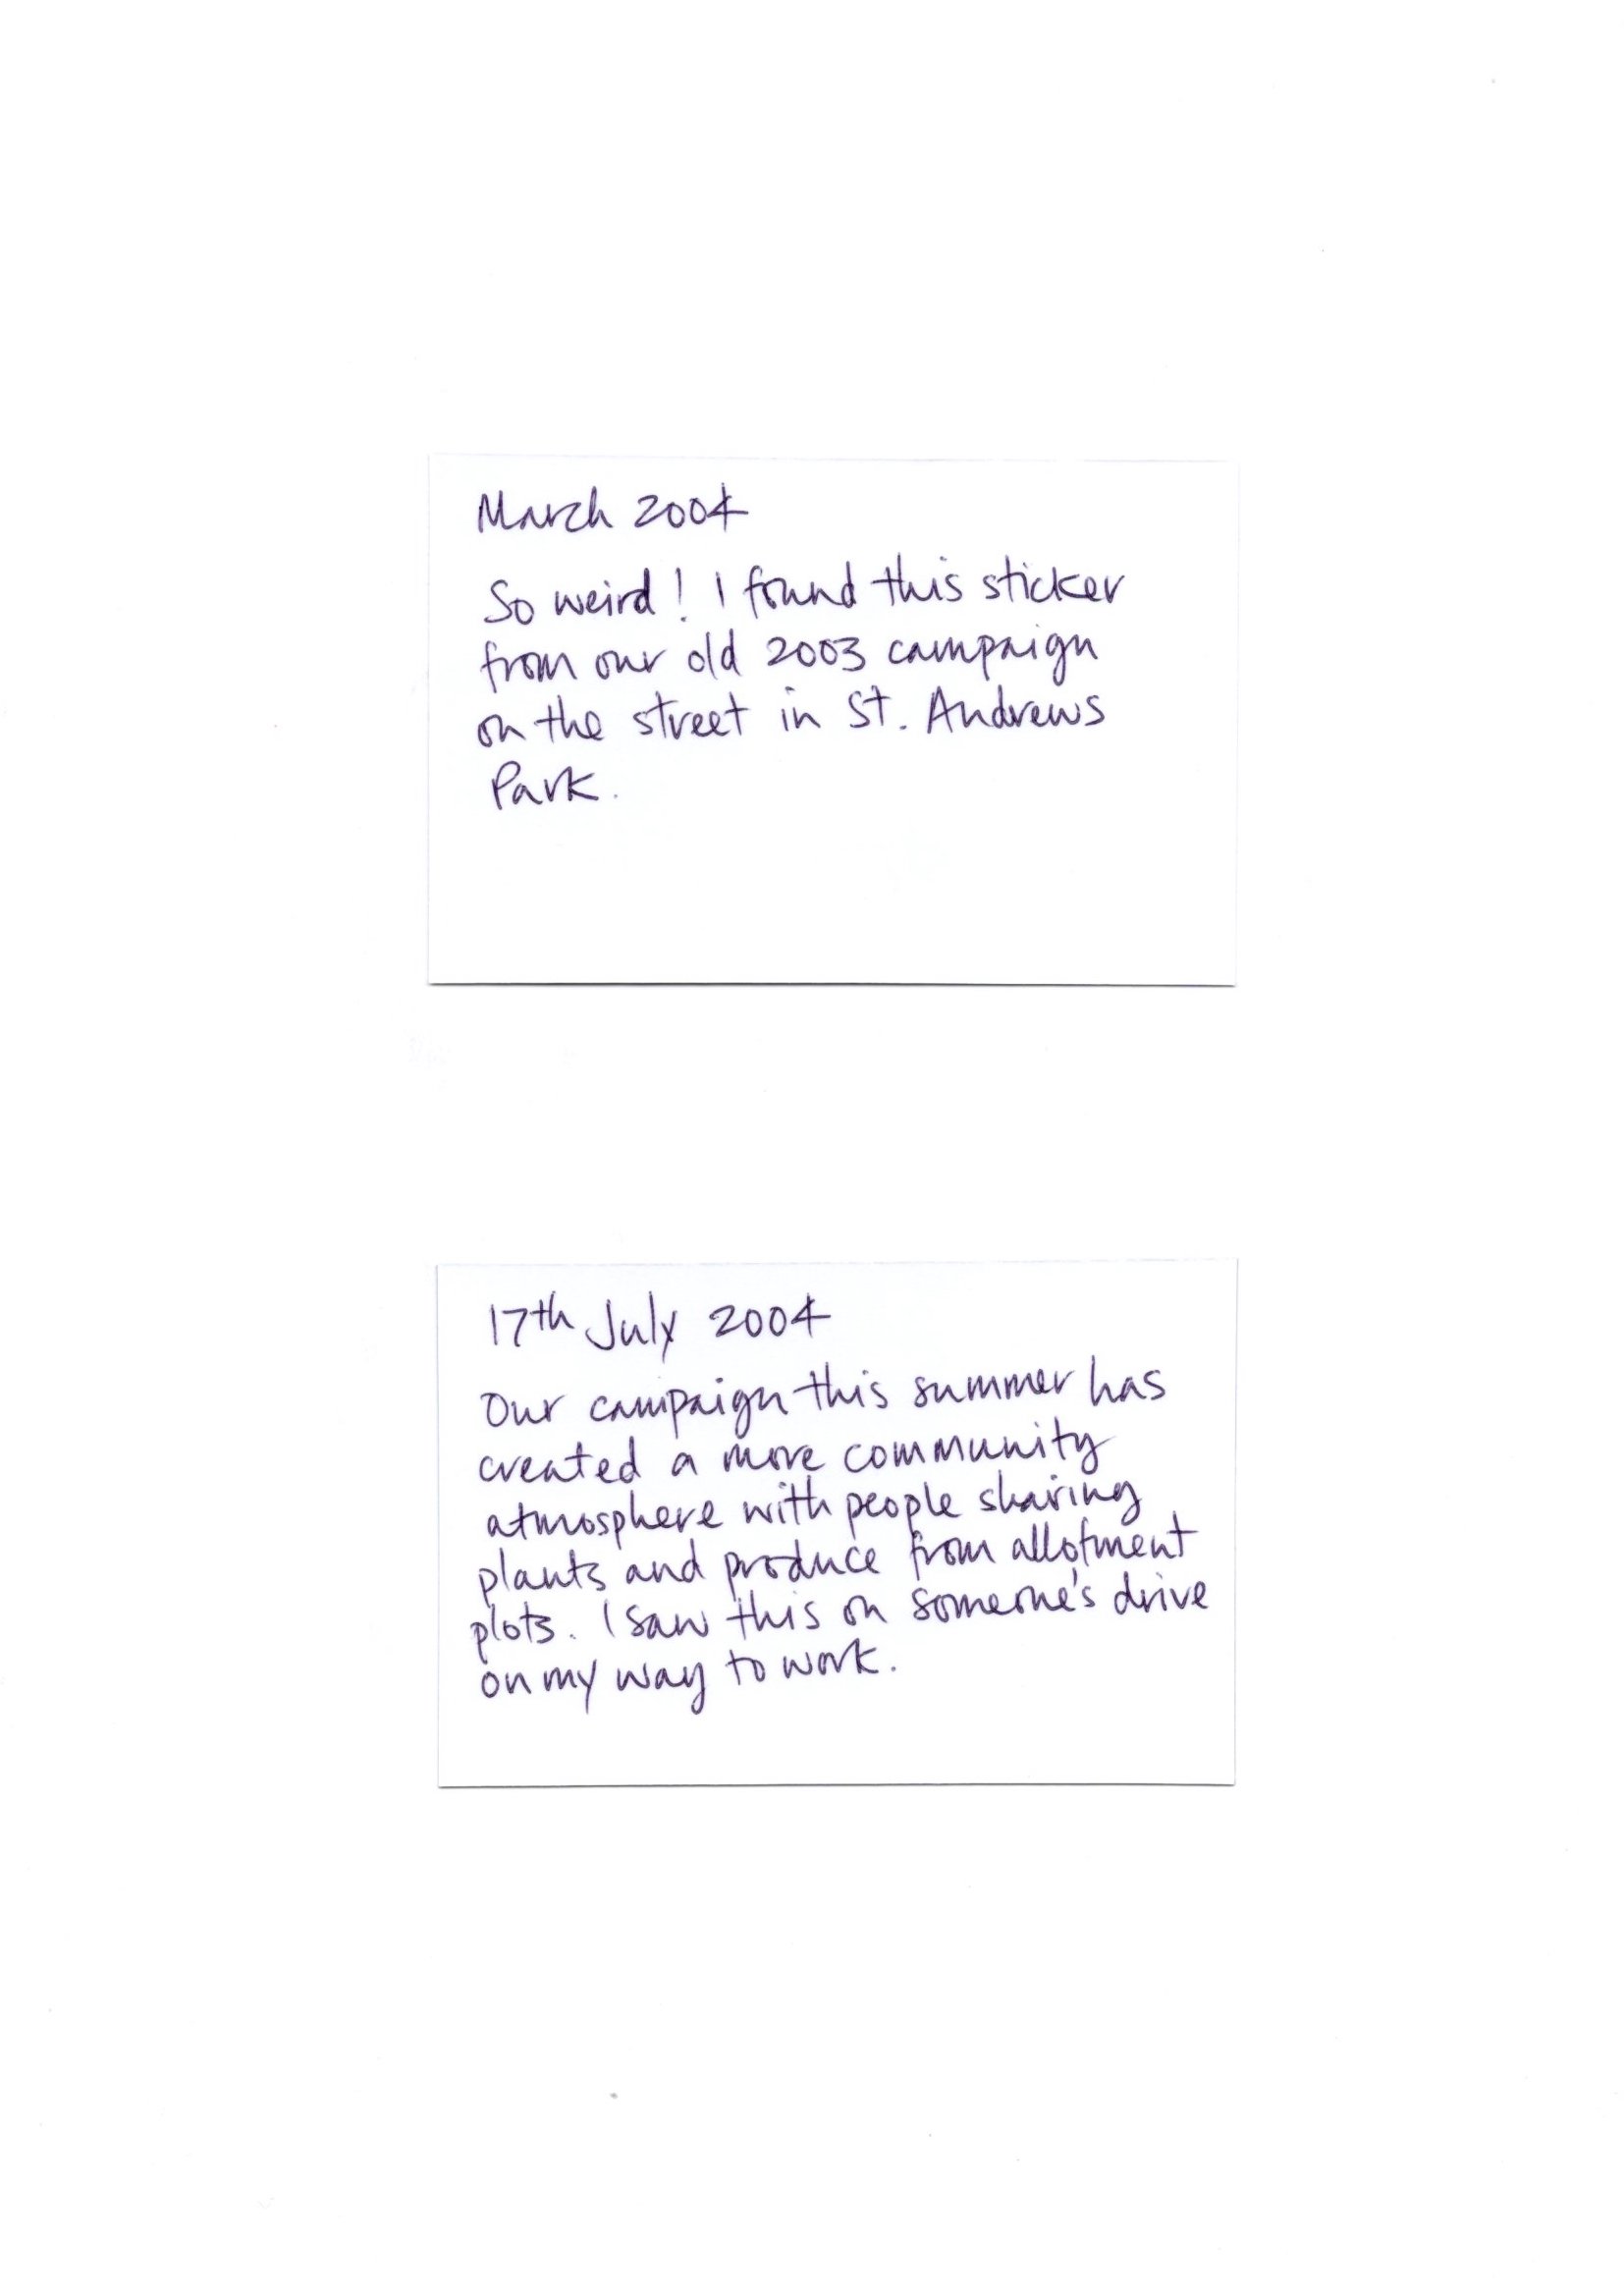 March 2004
So weird! I found this sticker
from our old 2003 campaign
on the street in St. Andrews
Park.
17th July 2004
Our campaign this summer has
created a more community
atmosphere with people sharing
plants and produce from allotment
plots. I saw this on someone's drive
on my way to work.